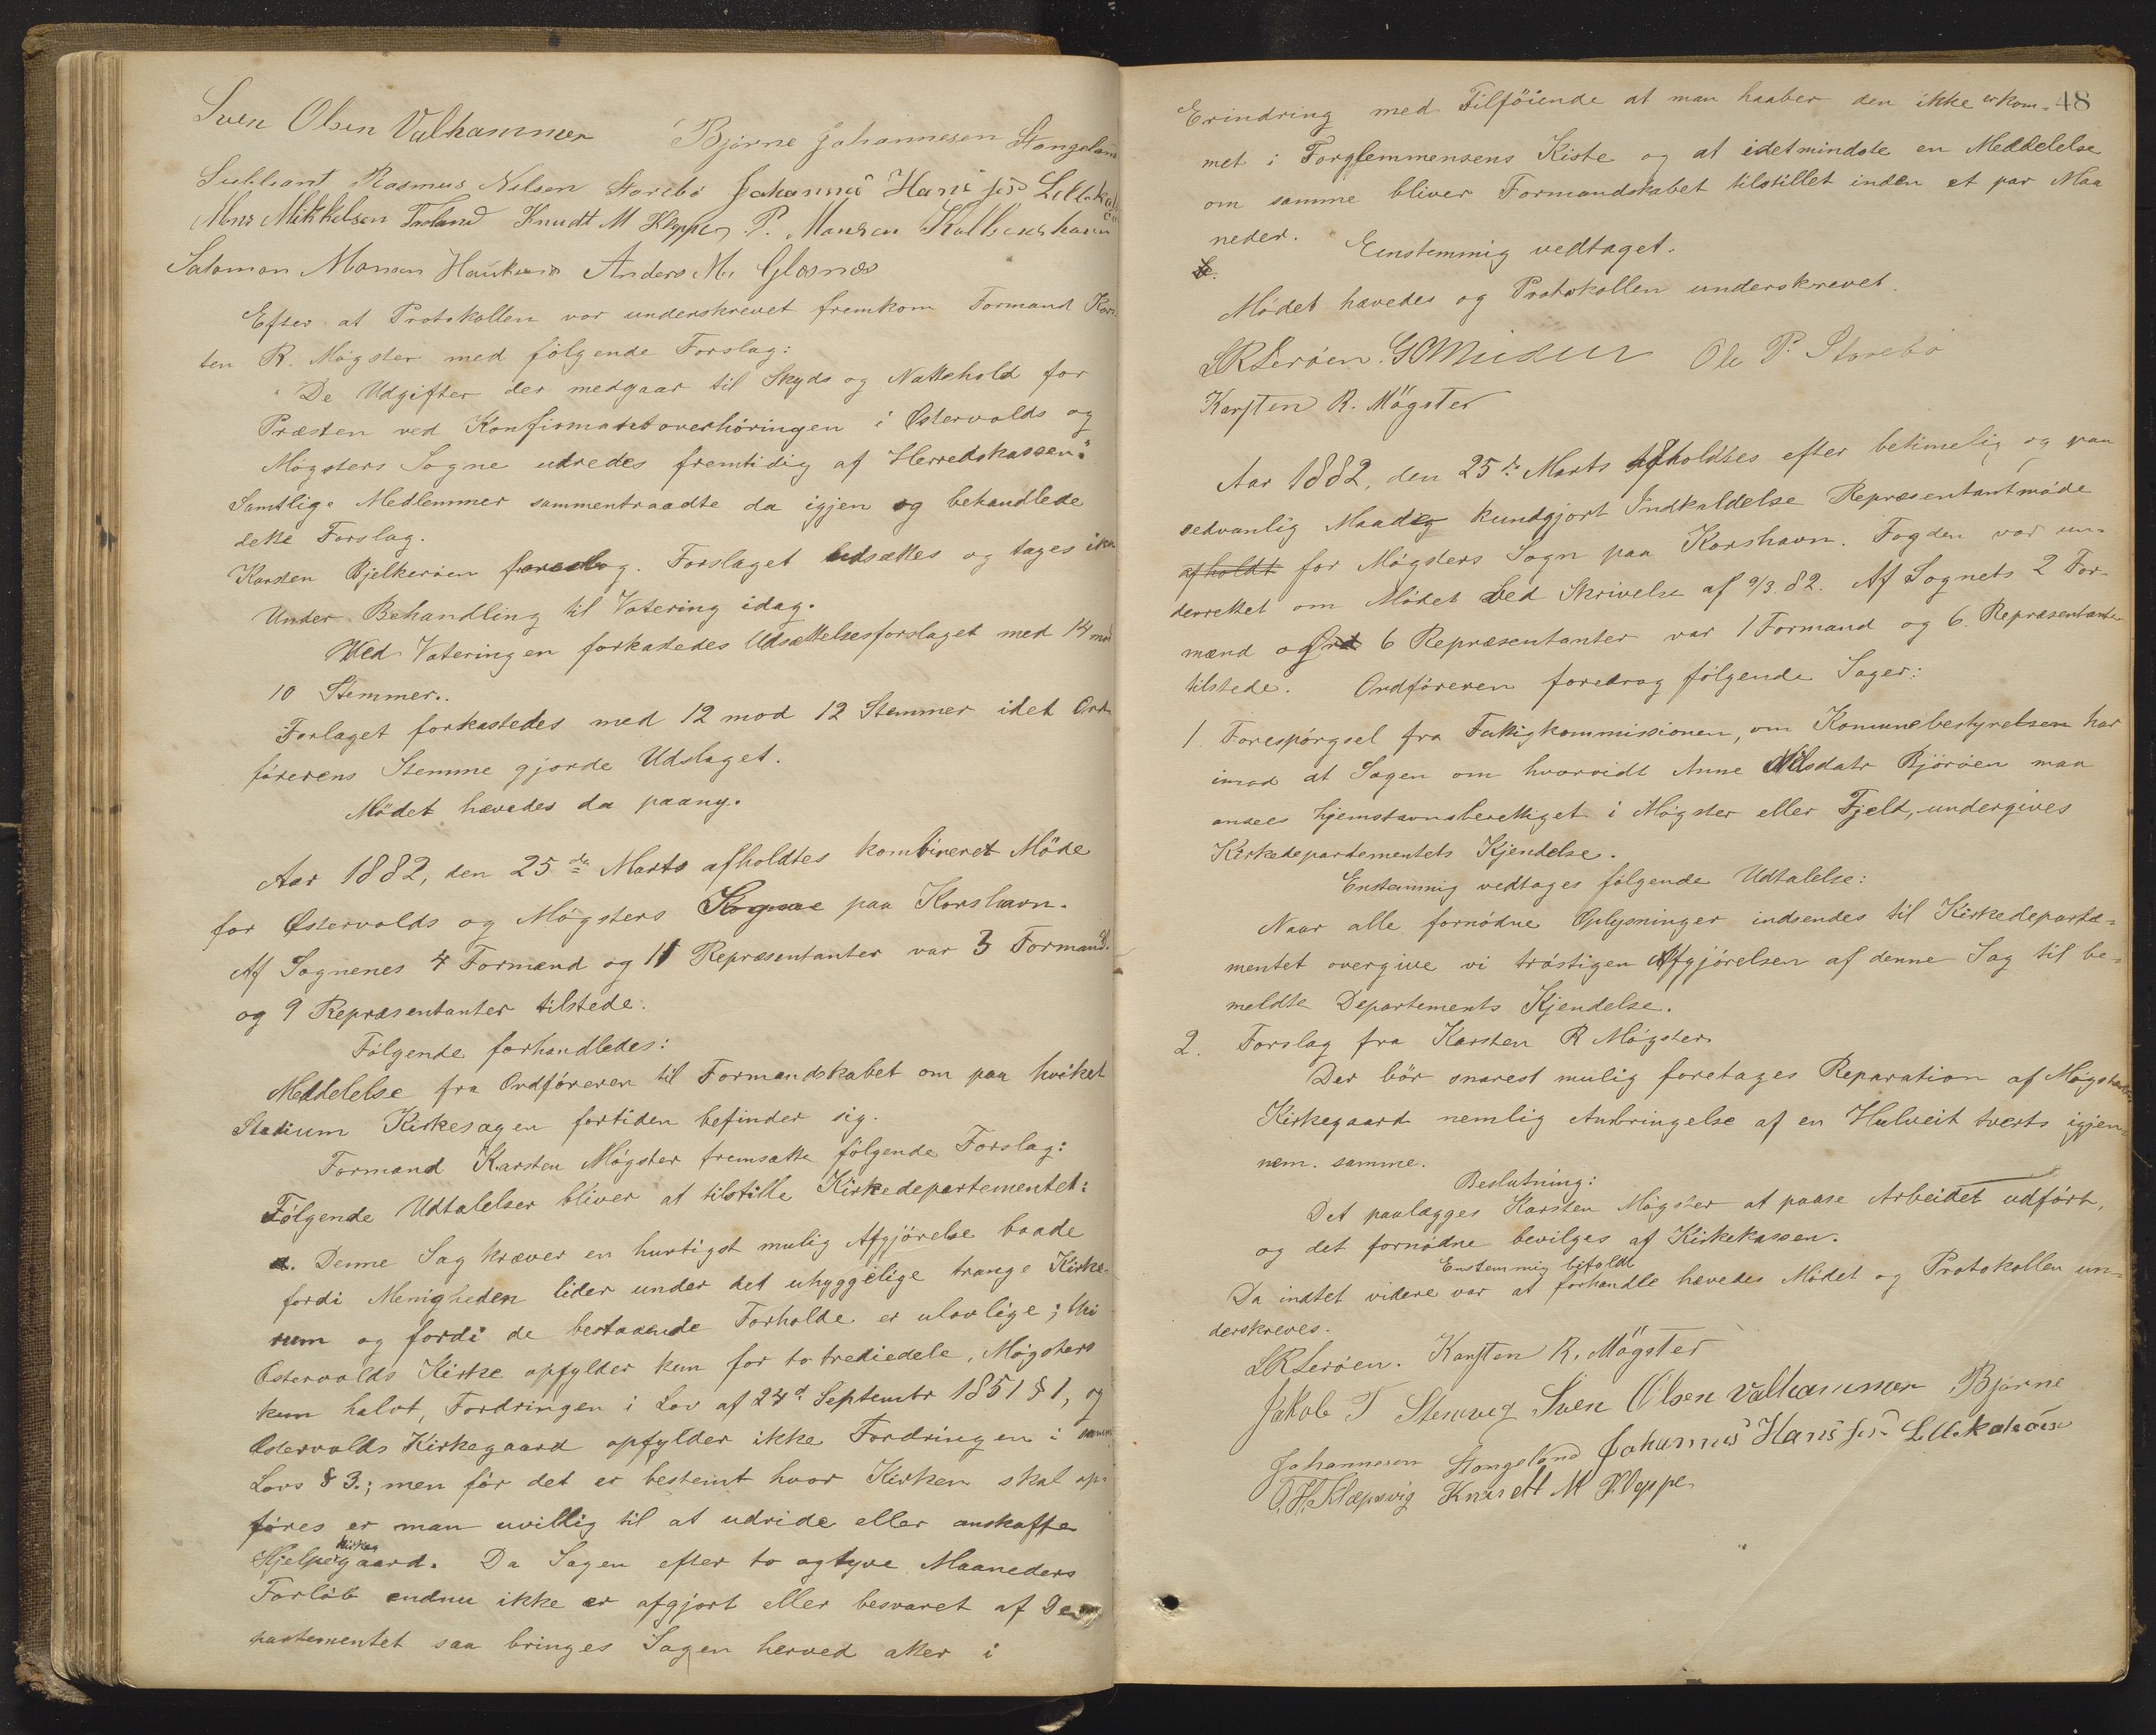 Sven Olsen Valhammer Bjørne Johannesen Stangeland
Supleant Rasmus Nilsen Storebø Johannes Hans Søn Lillekal
Mons Mikkelsen Troland Knudt M Kleppe P. Monsen Kolbenshavn
Salomon Monsen Haukenæs Anders M. Glæsnæs
Efter at Protokollen var underskrevet fremkom Formand Kar
ten R. Møgster med følgende Forslag:
"De Udgifter der medgaar til Skyds og Nattehold for
Præsten ved Konfirmantoverhøringen i Østervolds og
Møgsters Sogne udredes fremtidig af Herredskassen"
Samtlige Medlemmer sammentraadte da igjen og behandlede
dette Forslag.
Karsten Bjelkerøen foreslog. Forslaget udsættes og tages ikke
under Behandling til Votering idag.
Ved Voteringen forkastedes Udsættelsesforslaget med 14 mod
10 Stemmer.
Forlaget forkastedes med 12 mod 12 Stemmer idet Ord
førerens Stemme gjorde Udslaget.
Mødet hævedes da paany.
Aar 1882, den 25de Marts afholdtes kombineret Møde
for Østervolds og Møgsters Sogne paa Korshavn.
Af Sognenes 4 Formænd og 11 Repræsentanter var 3 Formænd
og 9 Repræsentanter tilstede.
Følgende forhandledes:
Meddelelse fra Ordføreren til Formandskabet om paa hvilket
Stadium Kirkesagen fortiden befinder sig.
Formand Karsten Møgster fremsatte følgende Forslag:
Følgende Udtalelser bliver at tilstille Kirkedepartementet:
a. Denne Sag kræver en hurtigst mulig Afgjørelse baade
fordi Menigheden lider under det uhyggelige trange Kirke-
rum og fordi de bestaaende Forholde er ulovlige; thi
Østervolds Kirke opfylder kun for to trediedele, Møgsters
kun halvt, Fordringen i Lov af 24d Septembr 1851 § 1, og
Østervolds Kirkegaard opfylder ikke Fordringen i samme
Lovs § 3.; men før det er bestemt hvor Kirken skal op-
føres er man uvillig til at udvide eller anskaffe
kirkeg
Hjelpegaard. Da Sagen efter to og tyve Maaneders
Forløb endnu ikke er afgjort eller besvaret af De
partementet saa bringes Sagen herved atter i
48
Erindring med Tilføiende at man haaber den ikke er kom-
met i Forglemmensens Kiste og at idetmindste en Meddelelse
om samme bliver Formandskabet tilstillet inden et par Maa
neder. Eenstemmig vedtaget.
Mødet hævedes og Protokollen underskrevet.
LRLerøen. Ole P. Storebø
Karsten R. Møgster
Aar 1882, den 25de Marts afholdtes efter betimelig og paa
sedvanlig Maade kundgjort Indkaldelse Repræsentantmøde
afholdt for Møgsters Sogn paa Korshavn. Fogden var un-
derrettet om Mødet ved Skrivelse af 9/3 82. Af Sognets 2 For-
mænd og 6 Repræsentanter var 1 Formand og 6 Repræsentanter
tilstede. Ordføreren foredrog følgende Sager:
1. Forespørgsel fra Fattigkommissionen, om Komunebestyrelsen har
imod at Sagen om hvorvidt Anne Nilsdatr Bjørøen maa
ansees hjemstavnsberettiget i Møgster eller Fjeld, undergives
Kirkedepartementets Kjendelse.
Enstemmig vedtages følgende Udtalelse:
Naar alle fornødne Oplysninger indsendes til Kirkedeparte-
mentet overgive vi trøstigen Afgjørelsen af denne Sag til be-
meldte Departements Kjendelse.
2. Forslag fra Karsten R Møgster.
Der bør snarest mulig foretages Reparation af Møgster
Kirkegaard nemlig Anbringelse af en Hulveit tverts igjen-
nem samme.
Beslutning:
Det paalægges Karsten Møgster at paase Arbeidet udført,
og det fornødne bevilges af Kirkekassen.
Enstemmig bifaldt
Da indtet videre var at forhandle hævedes Mødet og Protokollen un-
derskreves.
LRLerøen. Karsten R. Møgster
Jakob T Stenevig Sven Olsen Valhammer Bjørne
Johannesen Stangeland Johannes Hans Søn Lillekalsøen
O.H. Klepsvig Knudt M Kleppe